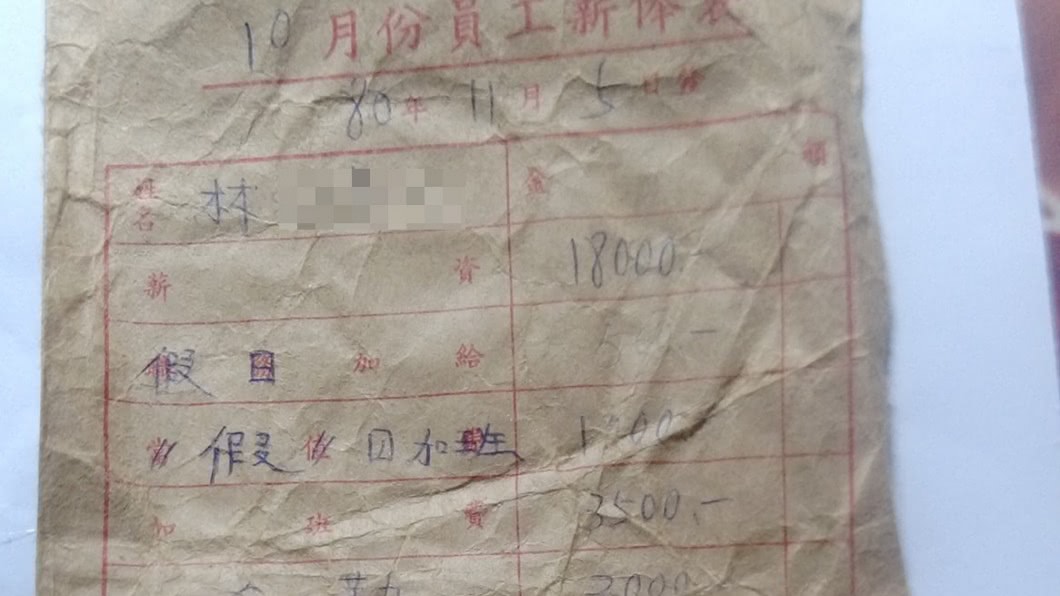 10月份員工薪俸表
80年 11月 5日發
姓名 林 金 額
薪 資 18000.
假日加給 —
假日加班
加班費 3500.—
全勤 2000